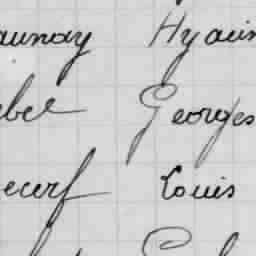 aunay Hyacin
bel Georges
ecerf Louis